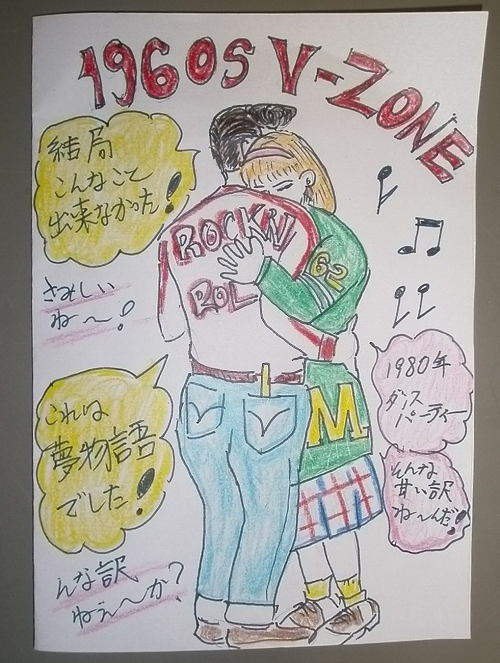 1960s V-ZONE
結局
こんなこと
出来なかった!
さみしい
ね〜!
ROCK'N
ROL
62
M
これは
夢物語
でした!
んな訳
ねぇ〜か?
1980年
ダンス
パーティー
そんな
甘い訳
ね〜んだ!